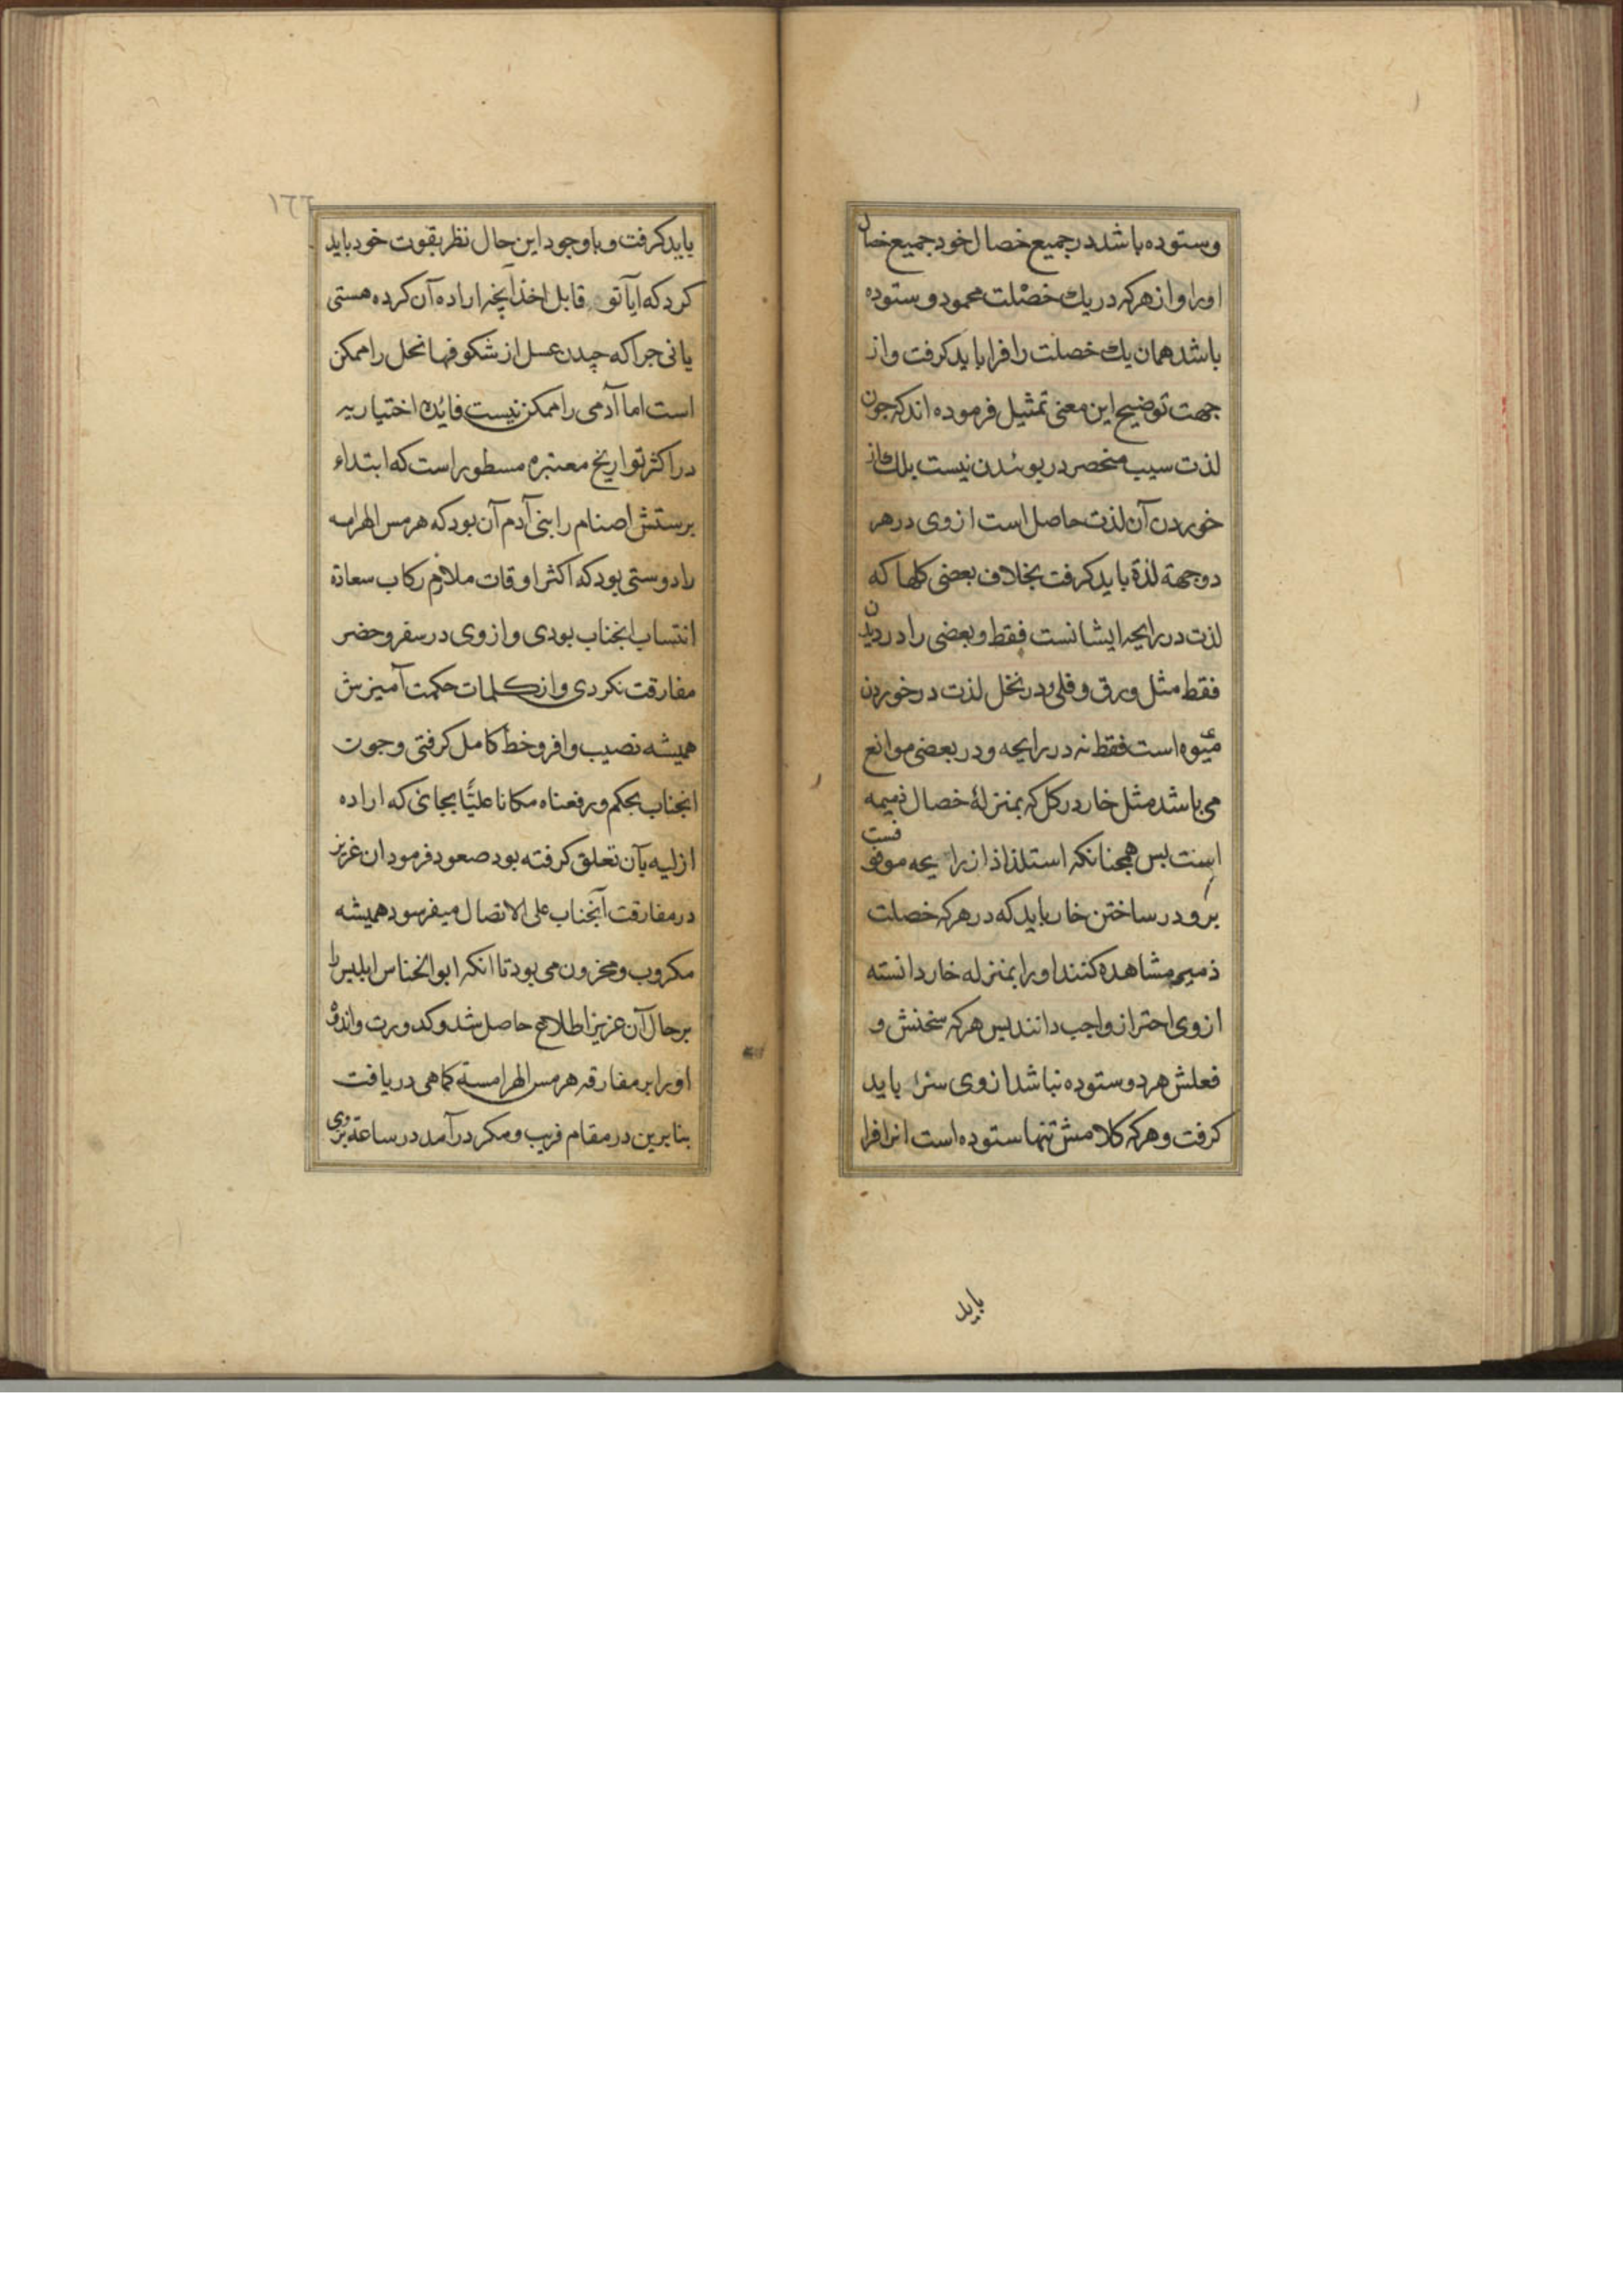 وستوده باشد در جمیع خصال خود جمیع خصال
اورا و از هرکه در یك خصْلت محمود و ستوده
باشد همان یك خصلت را فرا باید کرفت و از
جهت توضیح این معنی تمثیل فرموده اند که چون
لذت سیب منحصر در بوئدن نیست بلك از
خوردن آن لذت حاصل است از وی در هر
دو جهة لذة باید کرفت بخلاف بعضی کلها که
لذت در رایحه ایشانست فقط و بعضی را در دیدن
فقط مثل ورق و فلی و در نخل لذت در خوردن
میوه است فقط نه در رایحه و در بعضی موانع
می باشد مثل خار در کل که بمنزلهٔ خصال ذمیمه
است بس همچنانکه استلذاذ از رایحه موقوفست
بر ودر ساختن خار باید که در هر که خصلت
ذمیم مشاهده کنند او را بمنزله خار دانسته
از وی احتراز واجب دانند بس هرکه سخنش و
فعلش هر دو ستوده نباشد از وی ستره باید
کرفت و هرکه کلامش تنها ستوده است انرا فرا
باید
١٦٦
باید کرفت و باوجود این حال نظر بقوت خود باید
کرد که ایا تو قابل اخذ آنچه اراده آن کرده هستی
یا نی جرا که چیدن عسل از شکوفها نحل را ممکن
است اما آدمی را ممکن نیست فایده اختیاریه
در اکثر تواریخ معتبره مسطور است که ابتداء
برستش اصنام را بنی آدم آن بود که هرمس الهرامسه
را دوستی بود که اکثر اوقات ملازم رکاب سعادة
انتساب انجناب بودی و از وی در سفر و حضر
مفارقت نکردی و از کلمات حکمت آمیزش
همیشه نصیب وافر و خط کامل کرفتی وجون
انجناب بحکم ورفعناه مکانا علیّا بجائی که اراده
ازلیه بآن تعلق کرفته بود صعود فرمود ان عزیز
در مفارقت آنجناب علی الاتصال میفرسود همیشه
مکروب و محزون می بود تا انکه ابوالخناس ابلیس را
بر حال آن عزیز اطلاع حاصل شد و کدورت و اندوه
اورا بر مفارقه هرمس الهرامسة کما هی دریافت
بنابرین در مقام فریب و مکر درآمد در ساعة بروی